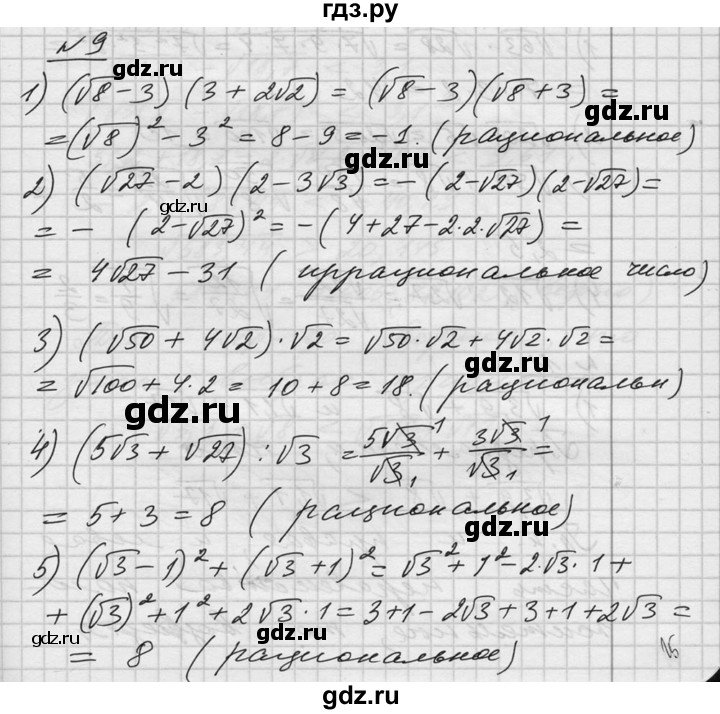 гдз.ру
№9
1) (√8 - 3) (3 + 2√2) = (√8 - 3)(√8 + 3) =
= (√8)² - 3² = 8 - 9 = -1. (рациональное)
gdz.ru
gdz.ru
2) (√27 - 2) (2 - 3√3) = -(2 - √27)(2 - √27) =
gdz.ru
= - (2 - √27)² = -(4 + 27 - 2·2·√27) =
gdz.ru
= 4√27 - 31 (иррациональное число)
3) (√50 + 4√2)·√2 = √50·√2 + 4√2·√2 =
= √100 + 4·2 = 10 + 8 = 18. (рациональн)
gdz.ru
gdz.ru
4) (5√3 + √27) : √3 = 5√3/√3 + 3√3/√3 =
1 1
1 1
= 5 + 3 = 8 (рациональное)
gdz.ru
gdz.ru
5) (√3 - 1)² + (√3 + 1)² = √3² + 1² - 2·√3·1 +
+ (√3)² + 1² + 2√3·1 = 3 + 1 - 2√3 + 3 + 1 + 2√3 =
gdz.ru
gdz.ru
= 8 (рациональное)
15
gdz.ru
gdz.ru